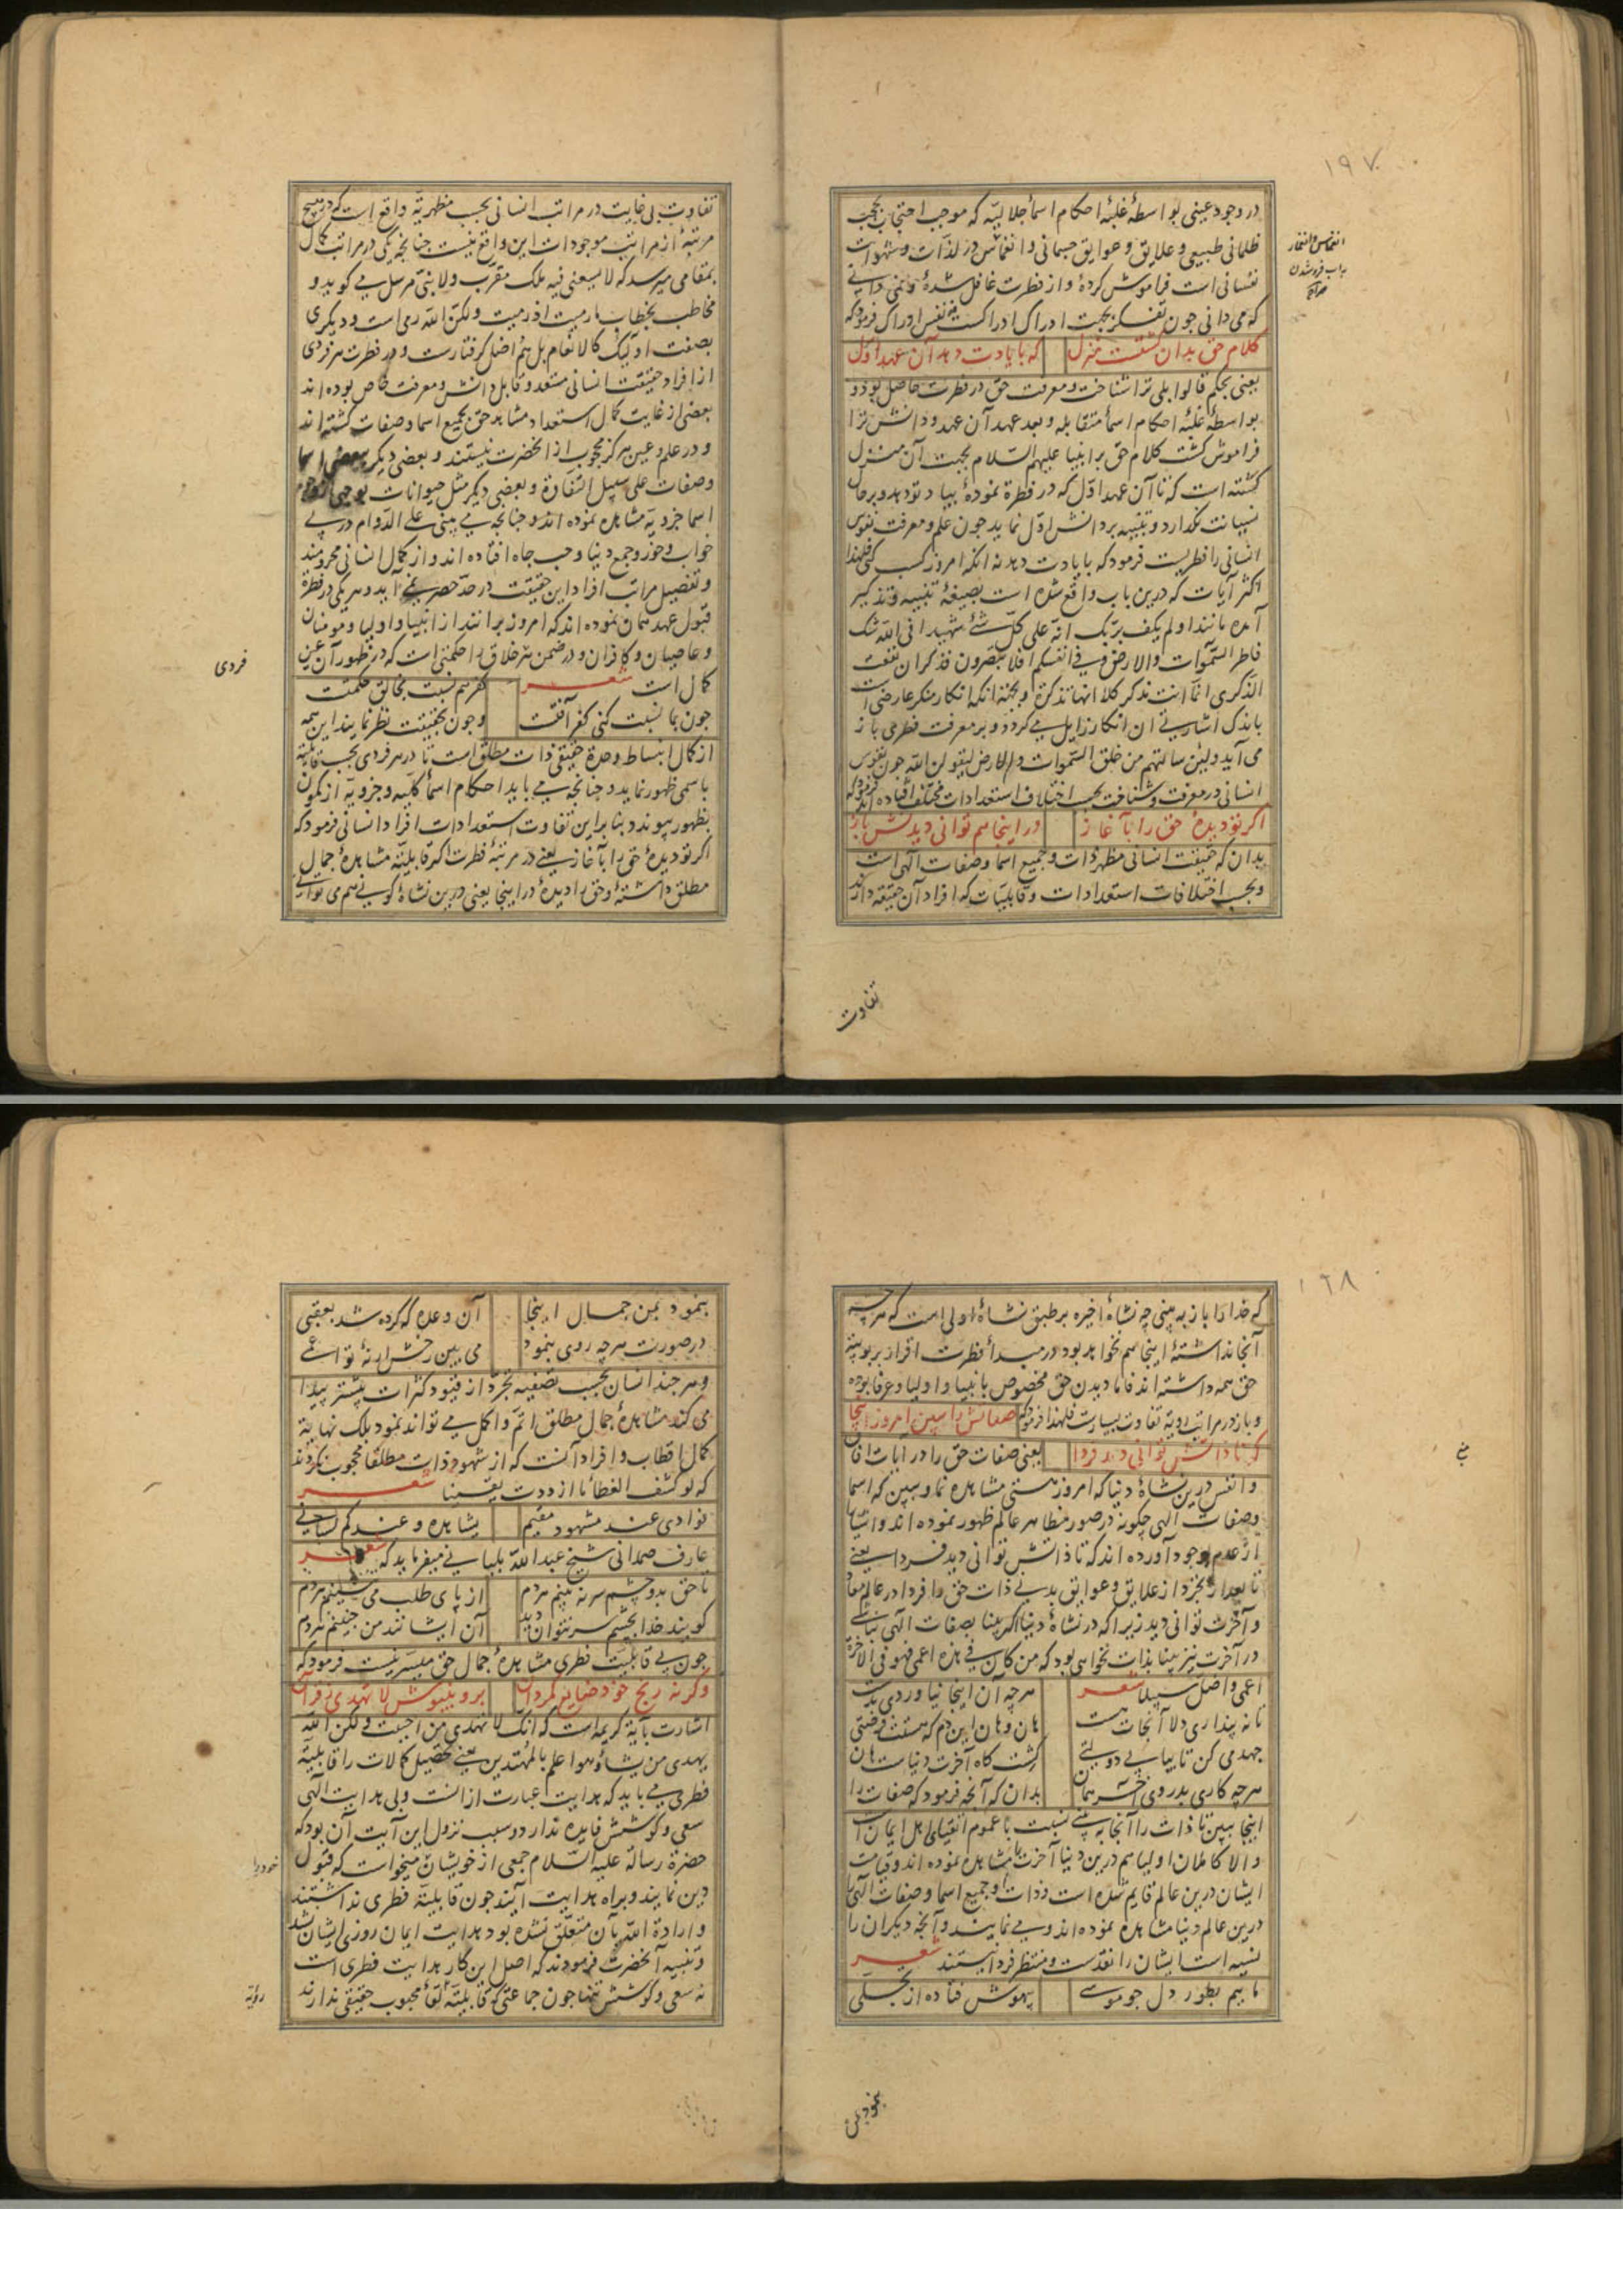 ۱۹۷
در وجود عینی بواسطهٔ غلبهٔ احکام اسماء جلالیّه که موجب احتجاب بحجب
ظلمانی طبیعی و علایق و عوایق جسمانی و انغماس در لذّات و شهوات
نفسانی است فراموش کردهٔ و از فطرت غافل شدهٔ و نمی دانی
که می دانی چون تفکر بجهت ادراک ادراکست نه نفس ادراک فرمود که
کلام حق بدان گشتست منزل که با یادت دهد آن عهد اوّل
یعنی بحکم قالوا بلی ترا شناخت و معرفت حق در فطرت حاصل بود و
بواسطهٔ غلبهٔ احکام اسماء متقابله و بعد عهد آن عهد و دانش ترا
فراموش گشت کلام حق بر انبیا علیهم السّلام بجهت آن منزل
گشته است که تا آن عهد اوّل که در فطرة نمودهٔ بیاد تو دهد و بر حال
نسیانت نگذارد و تنبیه بر دانش اوّل نماید چون علم و معرفت نفوس
انسانی را فطریست فرمود که با یادت دهد نه انکه امروز کسب کنی فلهذا
اکثر آیات که درین باب واقع شده است بصیغهٔ تنبیه و تذکیر
آمده مانند اولم یکف بربّک انّه علی کلّ شئ شهید افی الله شک
فاطر السّموات والارض و فی انفسکم افلا تبصرون فذکر ان نفعت
الذکری انّما انت مذکر کلا انها تذکرة و بجهة انکه انکار منکر عارضی است
باندک اشارتی آن انکار زایل می گردد و بر معرفت فطری باز
می آید و لئن سالتهم من خلق السّموات والارض لیقولن الله چون نفوس
انسانی در معرفت و شناخت بحسب اختلاف استعدادات مختلف افتاده اند فرمود که
اکر تو دیدهٔ حق را بآغاز در اینجا هم توانی دیدنش باز
بدان که حقیقت انسانی مظهر ذات و جمیع اسما و صفات الهی است
و بحسب اختلافات استعدادات و قابلیّات که افراد آن حقیقه دارند
انغماس و انغمار
باب فروشدن
صراح
تفاوت
تفاوت بی غایت در مراتب انسانی بحسب مظهریّة واقع است که در هیچ
مرتبهٔ از مراتب موجودات این واقع نیست چنانچه یکی در مراتب کمال
بمقامی میرسد که لا یسعنی فیه ملک مقرّب ولا نبیّ مرسل می گوید و
مخاطب بخطاب مارمیت اذ رمیت ولکنّ الله رمی است و دیگری
بصفت اولئک کالانعام بل هم اضل گرفتارست و در فطرت هر فردی
از افراد حقیقت انسانی مستعد و قابل دانش و معرفت خاص بوده اند
بعضی از غایت کمال استعداد مشاهد حق بجمیع اسما و صفات گشته اند
و در علم و عین هرگز محجوب از آنحضرت نیستند و بعضی دیگر ببعضی اسما
وصفات علی سبیل التّفاوة و بعضی دیگر مثل حیوانات بوجهی از وجوه
اسما جزویّه مشاهده نموده اند و چنانچه می بینی علی الدّوام در پی
خواب و خور و جمع دنیا و حب جاه افتاده اند و از کمال انسانی محرومند
و تفصیل مراتب افراد این حقیقت در حدّ حصر نمی آید و هر یکی در فطرة
قبول عهد همان نموده اند که امروز برانند از انبیا و اولیا و مومنان
و عاصیان و کافران و در ضمن هر خلاق را حکمتی است که در ظهور آن عین
کمال است شعر کفر هم نسبت بخالق حکمتست
چون بما نسبت کنی کفر آفتست و چون بحقیقت نظر نمایند این همه
از کمال انبساط وحدة حقیقی ذات مطلق است تا در هر فردی بحسب قابلیّة
باسمی ظهور نماید و چنانچه می باید احکام اسماء کلّیه و جزویّه از کمون
بظهور پیوندد بنا براین تفاوت استعدادات افراد انسانی فرمود که
اکر تو دیدهٔ حق را بآغاز یعنی در مرتبهٔ فطرت اکر قابلیّة مشاهدهٔ جمال
مطلق داشتهٔ و حق را دیدهٔ در اینجا یعنی درین نشاهٔ کونی هم می توانی
فردی
۱۹۸
که خدا را باز به بینی چه نشاهٔ اخیره بر طبق نشاهٔ اولی است که هر چه
آنجا نداشتهٔ اینجا هم نخواهد بود در مبدأ فطرت اقرار بربوبیّة
حق همه داشته اند فاما دیدن حق مخصوص بانبیا و اولیا و عرفا بوده
و باز در مراتب رویّة تفاوت بسیارست فلهذا فرمود که صفاتش را ببین امروز اینجا
که تا ذاتش توانی دید فردا یعنی صفات حق را در آیات آفاق
و انفس درین نشاهٔ دنیا که امروز هستی مشاهده نما و ببین که اسما
و صفات الهی چگونه در صور مظاهر عالم ظهور نموده اند و اشیا
از عدم بوجود آورده اند که تا ذاتش توانی دید فردا یعنی
تا بعد از تجرّد از علایق و عوایق بدنی ذات حق را فردا در عالم معاد
و آخرت توانی دید زیرا که در نشاهٔ دنیا اکر بینا بصفات الهی نباشی
در آخرت نیز بینا بذات نخواهی بود که من کان فی هذه اعمی فهو فی الآخرة
اعمی و اضلّ سبیلا شعر هرچه آن اینجا نیاوردی بدست
تا نه پنداری دلا آنجات هست هان و هان این دم که هستت فرصتی
جهد می کن تا بیابی دولتی کشت گاه آخرت دنیاست هان
هرچه کاری بدروی آخر همان بدان که آنچه فرمود که صفات را
اینجا ببین تا ذات را آنجا به بینی نسبت با عموم اتقیای اهل ایمان است
والا کاملان اولیا هم درین دنیا آخرت را مشاهده نموده اند و قیامت
ایشان درین عالم قایم شده است و ذات و جمیع اسما و صفات الهی را
درین عالم دنیا مشاهده نموده اند و می نمایند و آنچه دیگران را
نسیه است ایشان را نقدست و منتظر فردا نیستند شعر
ماییم بطور دل چو موسی بیهوش فتاده از تجلّی
بنمود بمن
بنمود بمن جمال اینجا آن وعده که کرده شد بعقبی
در صورت هرچه روی بنمود می بین رخش ار نهٔ تو اعمی
و هر چند انسان بحسب تصفیه تجرّد از قیود کثرات بیشتر پیدا
می کند مشاهدهٔ جمال مطلق اتمّ و اکمل می تواند نمود بلک نهایة
کمال اقطاب و افراد آنست که از شهود ذات مطلقا محجوب نگردند
که لو کشف الغطاء ما ازددت یقینا شعر
فوادی عند مشهود مقیم یشاهده و عندکم لسانی
عارف صمدانی شیخ عبدالله بلیانی میفرماید که شعر
تا حق بدو چشم سر نه بینم هردم از پای طلب می ننشینم هردم
گویند خدا بچشم سر نتوان دید آن ایشانند من چنینم هردم
چون بی قابلیّت فطری مشاهدهٔ جمال حق میسّر نیست فرمود که
وگرنه رنج خود ضایع مگردان برو بنیوش لا تهدی ز قرآن
اشارت بآیة کریمه است که انّک لا تهدی من احببت ولکن الله
یهدی من یشاء و هو اعلم بالمهتدین یعنی تحصیل کمالات را قابلیّة
فطری می باید که هدایت عبارت از آنست و بی هدایت الهی
سعی و کوشش فایده ندارد و سبب نزول این آیت آن بود که
حضرة رسالة علیه السّلام جمعی از خویشان میخواست که قبول
دین نمایند و براه هدایت آیند چون قابلیّة فطری نداشتند
و ارادة الله بآن متعلّق نشده بود هدایت ایمان روزی ایشان نشد
و تنبیه آنحضرت فرمودند که اصل این کار هدایت فطری است
نه سعی و کوشش تنها چون جماعتی که قابلیّة لقاء محبوب حقیقی ندارند
خود را
رؤیة